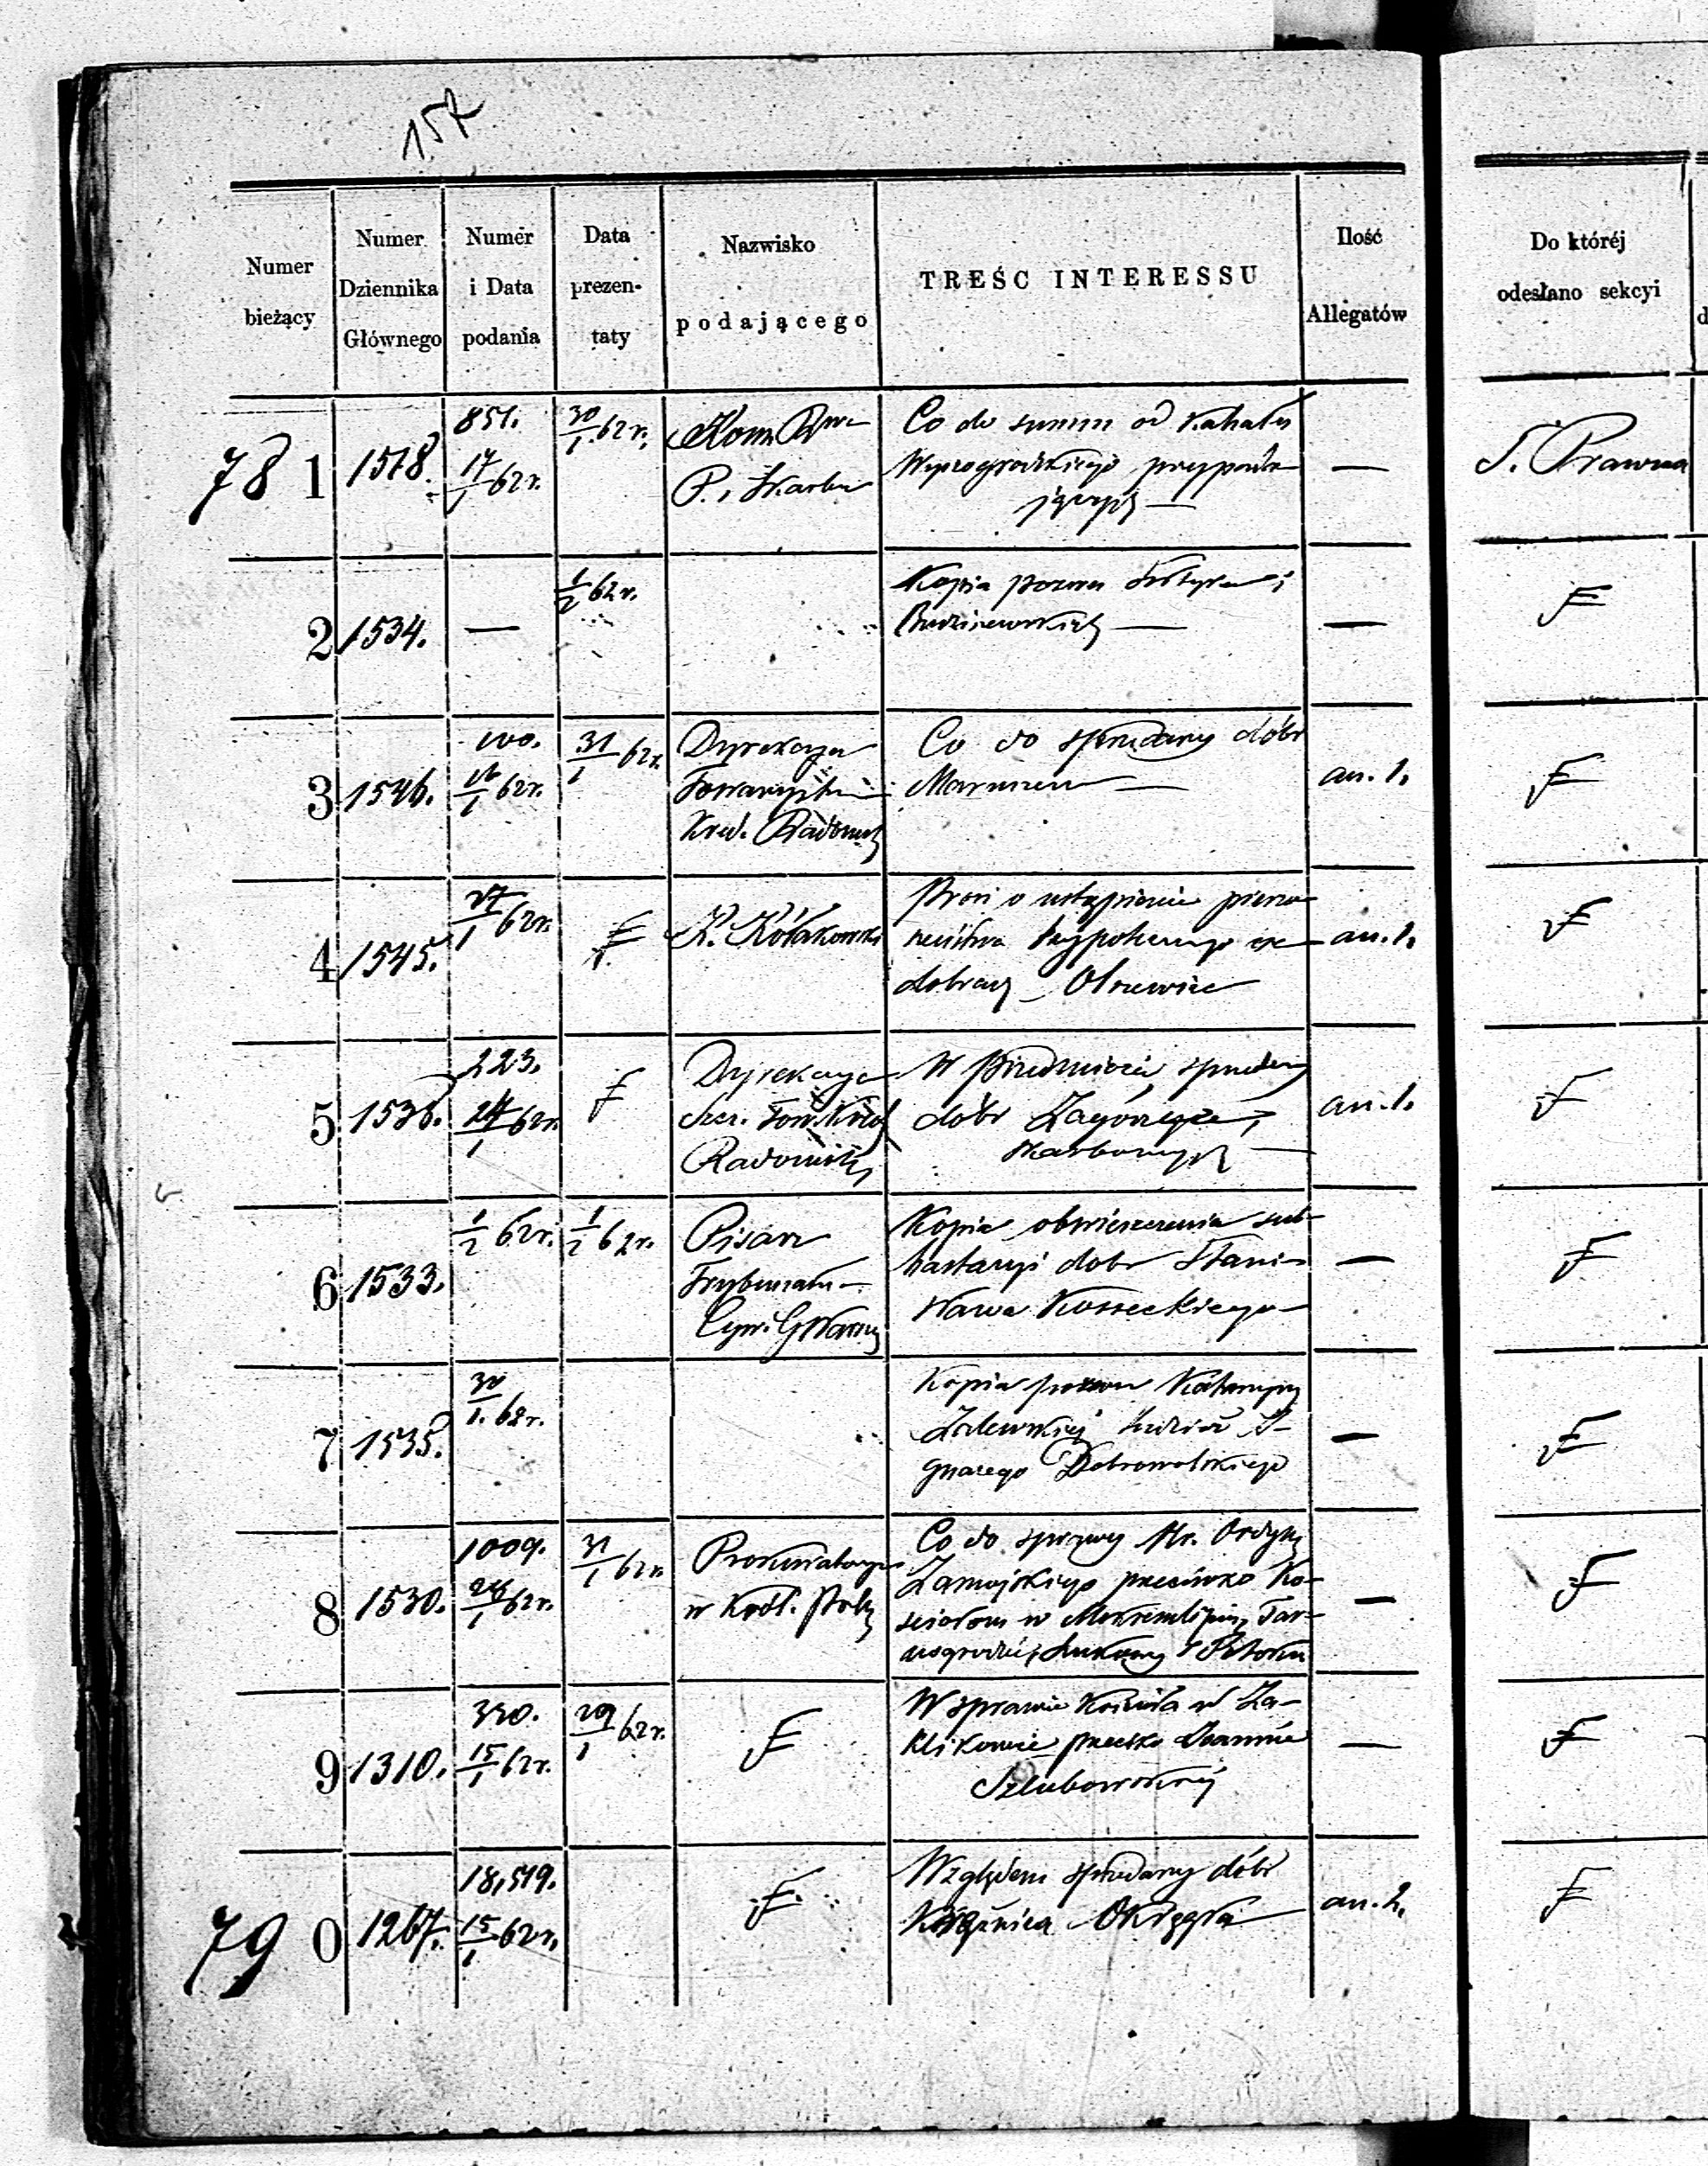 157
Numer bieżący
Numer Dziennika Głównego
Numer i Data podania
Data prezen- taty
Nazwisko podającego
TREŚĆ INTERESSU
Ilość Allegatów
Do któréj odesłano sekcyi
78 1 1518. 851. 17/1 62r. 30/1 62r. Kom. P. i Skarbu
Co do summ od Kahału
Wyszogrodzkiego przypada-
jących —
—
S. Prawna
2 1534. — 1/2 62r.
Kopia pozwu i
Budziszewskich —
—
3 1546. 100. 16/1 62r. 31/1 62r.
Dyrekcya
Towarzystwa
Kred. Radomsk
Co do sprzedaży dóbr
Maruszew —
an. 1.
4 1545. 27/1 62r. K. Kołakowski
Prosi o ustąpienie pierw-
szeństwa hypotecznego na
dobrach Olszewice
an. 1.
5 1536. 223. 24/1 62r.
Dyrekcya
Szcz. Tow. Kred
Radomska
W przedmiocie sprzedaży
dóbr
skarbowych —
an. 1.
6 1533. 1/2 62r. 1/2 62r.
Pisarz
Trybunału
Cyw. G Warsz
Kopia obwieszczenia sub-
hastacyi dobr Stani-
sława Kosseckiego
—
7 1535. 30/1. 62r.
Kopia pozwu Katarzyny
Zalewskiej I-
gnacego Dobrowolskiego
—
8 1530. 1009. 31/1 62r.
Prokuratorya
w Król. Pols
Co do sprawy Hr. Ordyn
Zamojskiego przeciwko Ko-
sciołom w Tar-
nogrodzie, Łukowy i Potoku
—
9 1310. 320. 15/1 62r. 29/1 62r.
W sprawie Kościoła w Za-
klikowie przeciwko Joannie
Szlubowskiej
—
79 0 1267. 18,519. 15/1 62r.
Względem sprzedaży dóbr
Krężnica Okrągła
an. 2.